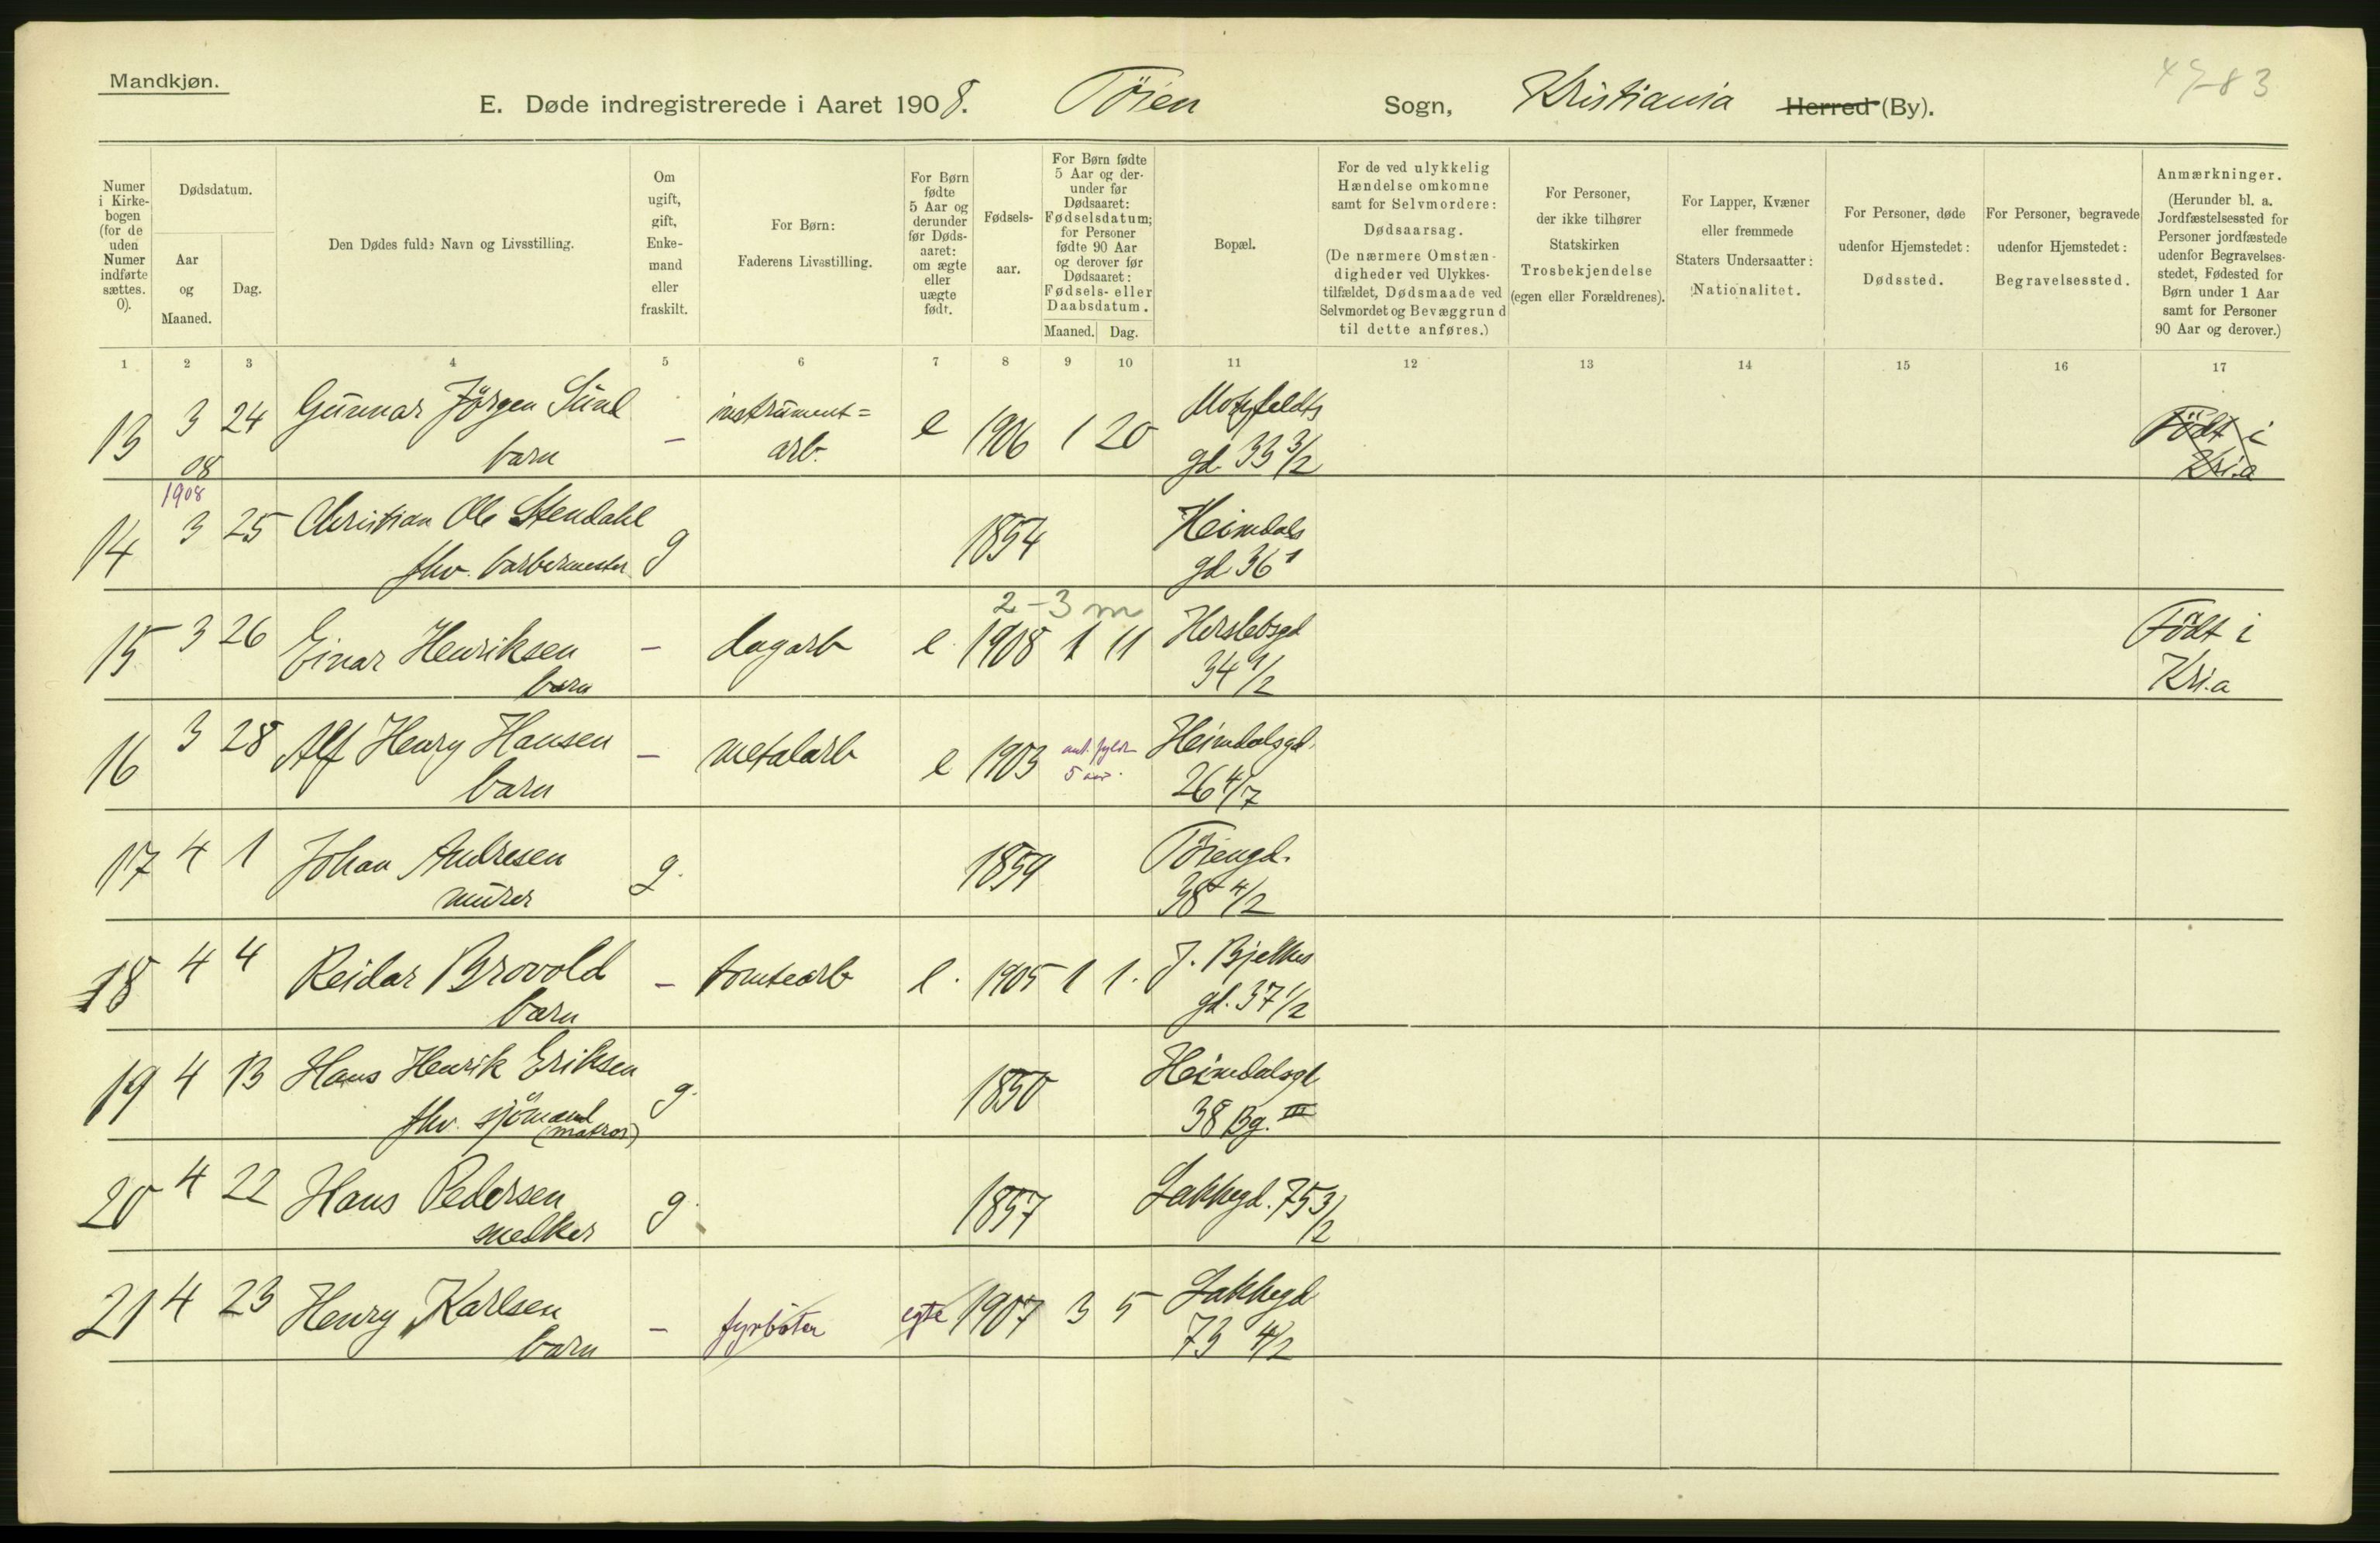 Mandkjøn.
E. Døde indregistrerede i Aaret 1908. Töien Sogn, Kristiania Herred (By).
Numer i Kirke-bogen (for de uden Numer indførte sættes. 0).
Dødsdatum.
Aar og Maaned.
Dag.
Den Dødes fulde Navn og Livsstilling.
Om ugift, gift, Enke-mand eller fraskilt.
For Børn:
Faderens Livsstilling.
For Børn fødte 5 Aar og derunder før Døds-aaret: om ægte eller uægte født.
Fødsels-aar.
For Børn fødte 5 Aar og der-under før Dødsaaret: Fødselsdatum; for Personer fødte 90 Aar og derover før Dødsaaret: Fødsels- eller Daabsdatum.
Maaned. Dag.
Bopæl.
For de ved ulykkelig Hændelse omkomne samt for Selvmordere:
Dødsaarsag.
(De nærmere Omstæn-digheder ved Ulykkes-tilfældet, Dødsmaade ved Selvmordet og Bevæggrund til dette anføres.)
For Personer, der ikke tilhører Statskirken
Trosbekjendelse
(egen eller Forældrenes).
For Lapper, Kvæner eller fremmede Staters Undersaatter:
Nationalitet.
For Personer, døde udenfor Hjemstedet:
Dødssted.
For Personer, begravede udenfor Hjemstedet:
Begravelsessted.
Anmærkninger.
(Herunder bl. a. Jordfæstelsessted for Personer jordfæstede udenfor Begravelses-stedet, Fødested for Børn under 1 Aar samt for Personer 90 Aar og derover.)
1 2 3 4 5 6 7 8 9 10 11 12 13 14 15 16 17
13 3 24 Gunnar Jörgen Sund - instrument= e 1906 1 20 Motzfeldts Födt i
08 barn arb. gd. 33 3/2 Kri.a
1908
14 3 25 Christian Ole Stendahl g 1854 Heimdals
fhv. barbermester gd 36 1
2-3 m
15 3 26 Einar Henriksen - dagarb e. 1908 1 11 Herslebsgd Födt i
barn 34 9/2 Kri.a
16 3 28 Alf Henry Hansen - metalarb e 1903 Heimdalsgd.
barn 5 aar. 26 4/7
17 4 1 Johan Andresen g. 1859 Töiengd.
murer 38 4/2
18 4 4 Reidar Brovold - tomtearb e. 1905 1 1. J. Bjelkes
barn gd. 37 1/2
19 4 13 Hans Henrik Eriksen g. 1850 Heimdalsgd
fhv. sjömand (matros) 38 Bg. III
20 4 22 Hans Pedersen g. 1857 Lakkegd. 75 3/2
snedker
21 4 23 Henry Karlsen - fyrböter egte 1907 3 5 Lakkegd
barn 73 4/2